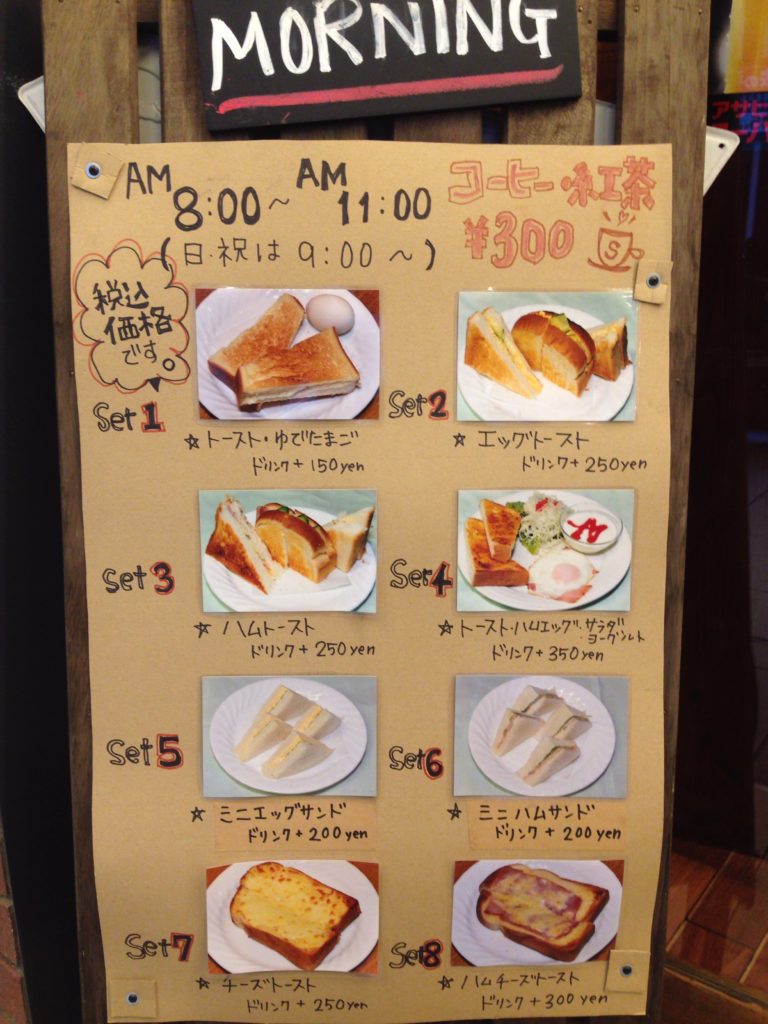 MORNING
AM 8:00〜 AM 11:00
(日・祝は 9:00〜)
コーヒー・紅茶
¥300
S
税込
価格
です。
Set 1
☆トースト・ゆでたまご
ドリンク+150yen
Set 2
☆ エッグトースト
ドリンク+250yen
Set 3
☆ ハムトースト
ドリンク+250yen
Set 4
☆トースト・ハムエッグ・サラダ・ヨーグルト
ドリンク+350yen
Set 5
☆ ミニエッグサンド
ドリンク+200yen
Set 6
☆ ミニハムサンド
ドリンク+200yen
Set 7
☆ チーズトースト
ドリンク+250yen
Set 8
☆ハムチーズトースト
ドリンク+300yen